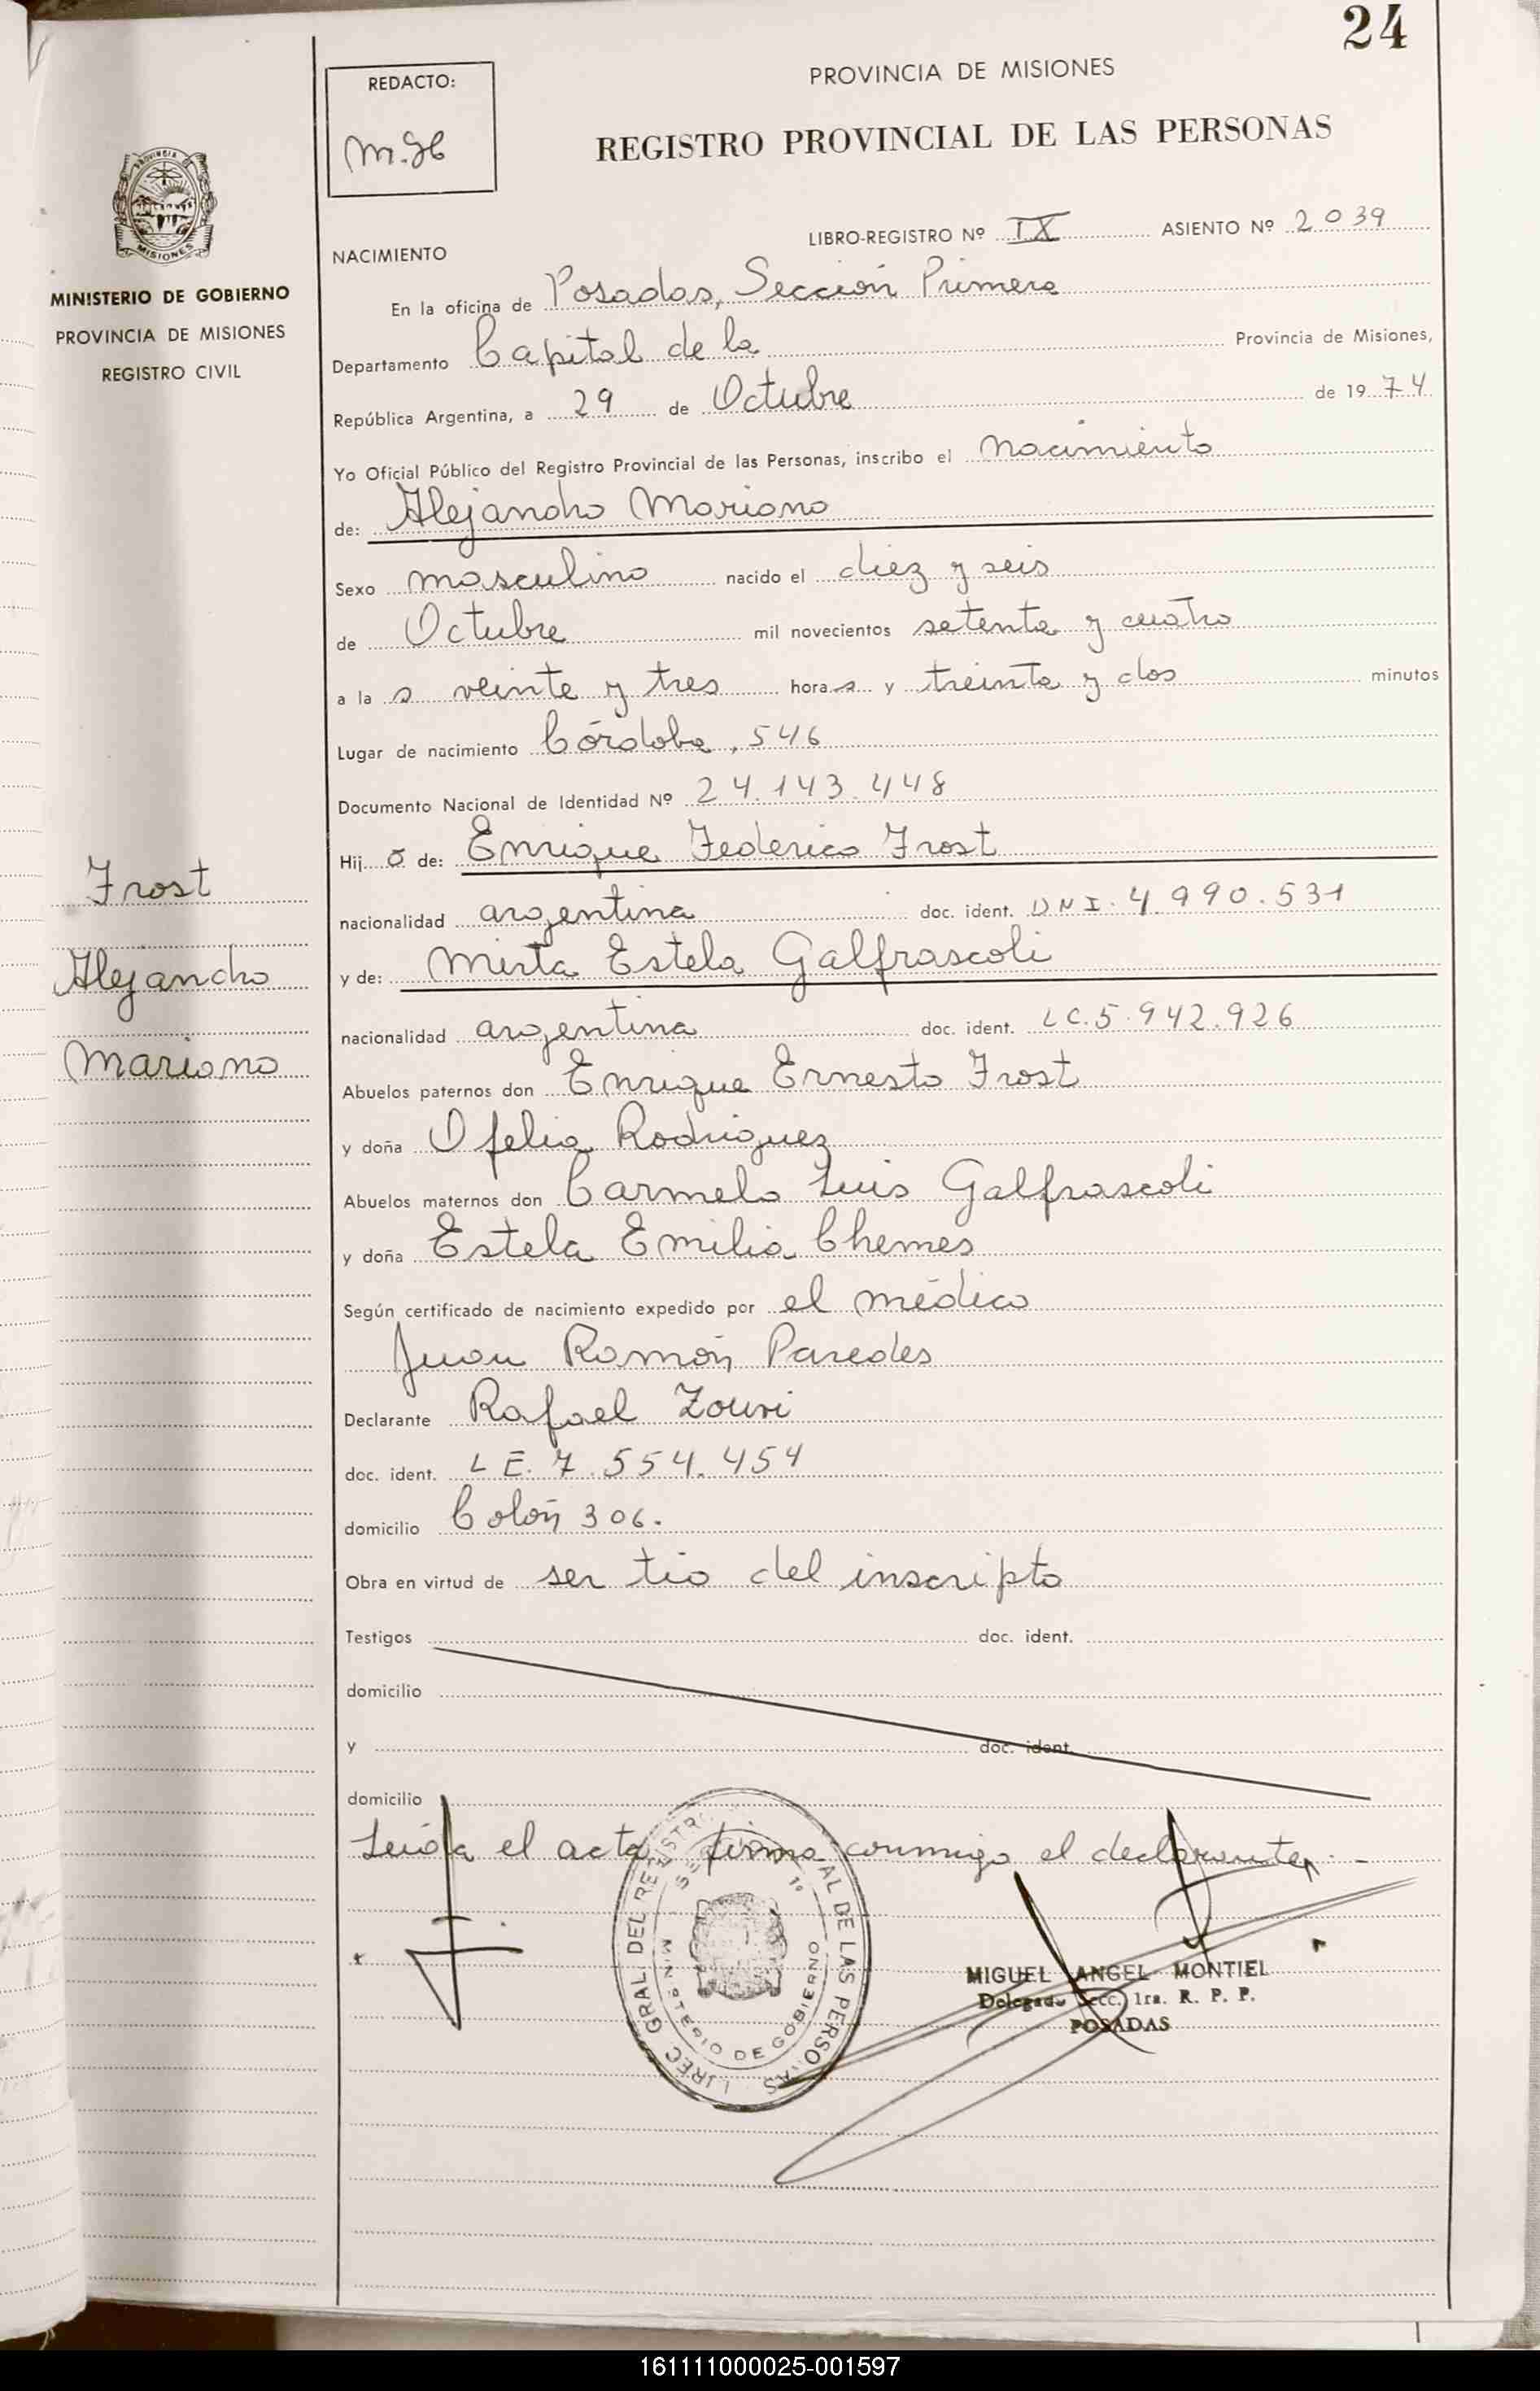 24
REDACTO:
PROVINCIA DE MISIONES
REGISTRO PROVINCIAL DE LAS PERSONAS
PROVINCIA
MISIONES
MINISTERIO DE GOBIERNO
PROVINCIA DE MISIONES
REGISTRO CIVIL
LIBRO-REGISTRO Nº IX ASIENTO Nº 2039
NACIMIENTO
En la oficina de Posadas, Sección Primera
Departamento Capital de la Provincia de Misiones,
República Argentina, a 29 de Octubre de 1974
Yo Oficial Público del Registro Provincial de las Personas, inscribo el nacimiento
de: Alejandro Mariano
Sexo masculino nacido el diez y seis
de Octubre mil novecientos setenta y cuatro
a la s veinte y tres hora s y treinta y dos minutos
Lugar de nacimiento Córdoba, 546
Documento Nacional de Identidad Nº 24.143.448
Hij o de: Enrique Federico Frost
nacionalidad argentina doc. ident. DNI. 4.990.531
y de: Mirta Estela Galfrascoli
nacionalidad argentina doc. ident. LC. 5.942.926
Abuelos paternos don Enrique Ernesto Frost
y doña Ofelia Rodriguez
Abuelos maternos don Carmelo Luis Galfrascoli
y doña Estela Emilia Chemes
Según certificado de nacimiento expedido por el médico
Juan Ramón Paredes
Declarante Rafael Zouvi
doc. ident. LE. 7.554.454
domicilio Colón 306.
Obra en virtud de ser tio del inscripto
Testigos doc. ident.
domicilio
y doc. ident.
domicilio
Leída el acta, firma conmigo el declarante. -
Frost
Alejandro
Mariano
DIREC. GRAL. DEL REGISTRO PROVINCIAL DE LAS PERSONAS
MINISTERIO DE GOBIERNO
MIGUEL ANGEL MONTIEL
Delegado Secc. 1ra. R. P. P.
POSADAS
161111000025-001597